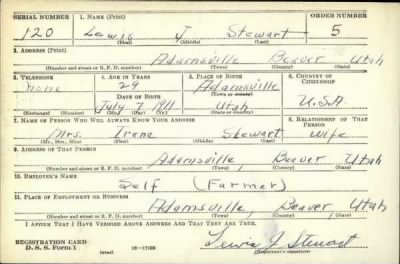 SERIAL NUMBER 1. NAME (Print) ORDER NUMBER
120 Lewis J Stewart 5
(First) (Middle) (Last)
2. ADDRESS (Print)
Adamsville Beaver Utah
(Number and street or R. F. D. number) (Town) (County) (State)
3. TELEPHONE 4. AGE IN YEARS 5. PLACE OF BIRTH 6. COUNTRY OF CITIZENSHIP
none 29 Adamsville
DATE OF BIRTH (Town or county)
July 7 1911 Utah U.S.A.
(Exchange) (Number) (Mo.) (Day) (Yr.) (State or country)
7. NAME OF PERSON WHO WILL ALWAYS KNOW YOUR ADDRESS 8. RELATIONSHIP OF THAT PERSON
Mrs. Irene Stewart wife
(Mr., Mrs., Miss) (First) (Middle) (Last)
9. ADDRESS OF THAT PERSON
Adamsville, Beaver Utah
(Number and street or R. F. D. number) (Town) (County) (State)
10. EMPLOYER'S NAME
Self (Farmer)
11. PLACE OF EMPLOYMENT OR BUSINESS
Adamsville, Beaver Utah
(Number and street or R. F. D. number) (Town) (County) (State)
I AFFIRM THAT I HAVE VERIFIED ABOVE ANSWERS AND THAT THEY ARE TRUE.
REGISTRATION CARD Lewis J Stewart
D. S. S. Form 1 (over) (Registrant's signature)